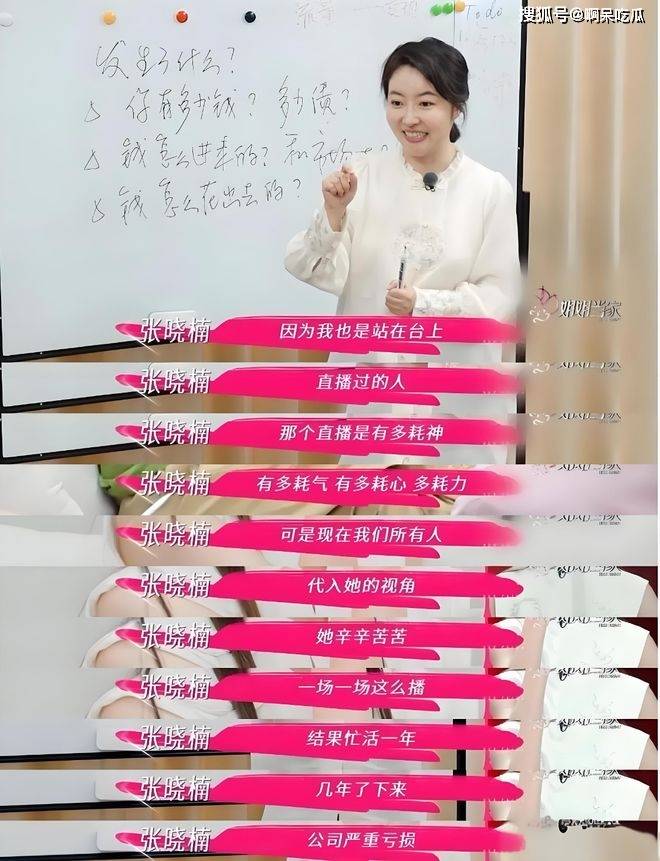 搜狐号@啊呆吃瓜
Todo
发生了什么？
你有多少钱？多少债？
钱怎么进来的？和
钱怎么花出去的？
娟娟当家
张晓楠 因为我也是站在台上
张晓楠 直播过的人
张晓楠 那个直播是有多耗神
张晓楠 有多耗气 有多耗心 多耗力
张晓楠 可是现在我们所有人
张晓楠 代入她的视角
张晓楠 她辛辛苦苦
张晓楠 一场一场这么播
张晓楠 结果忙活一年
张晓楠 几年了下来
张晓楠 公司严重亏损